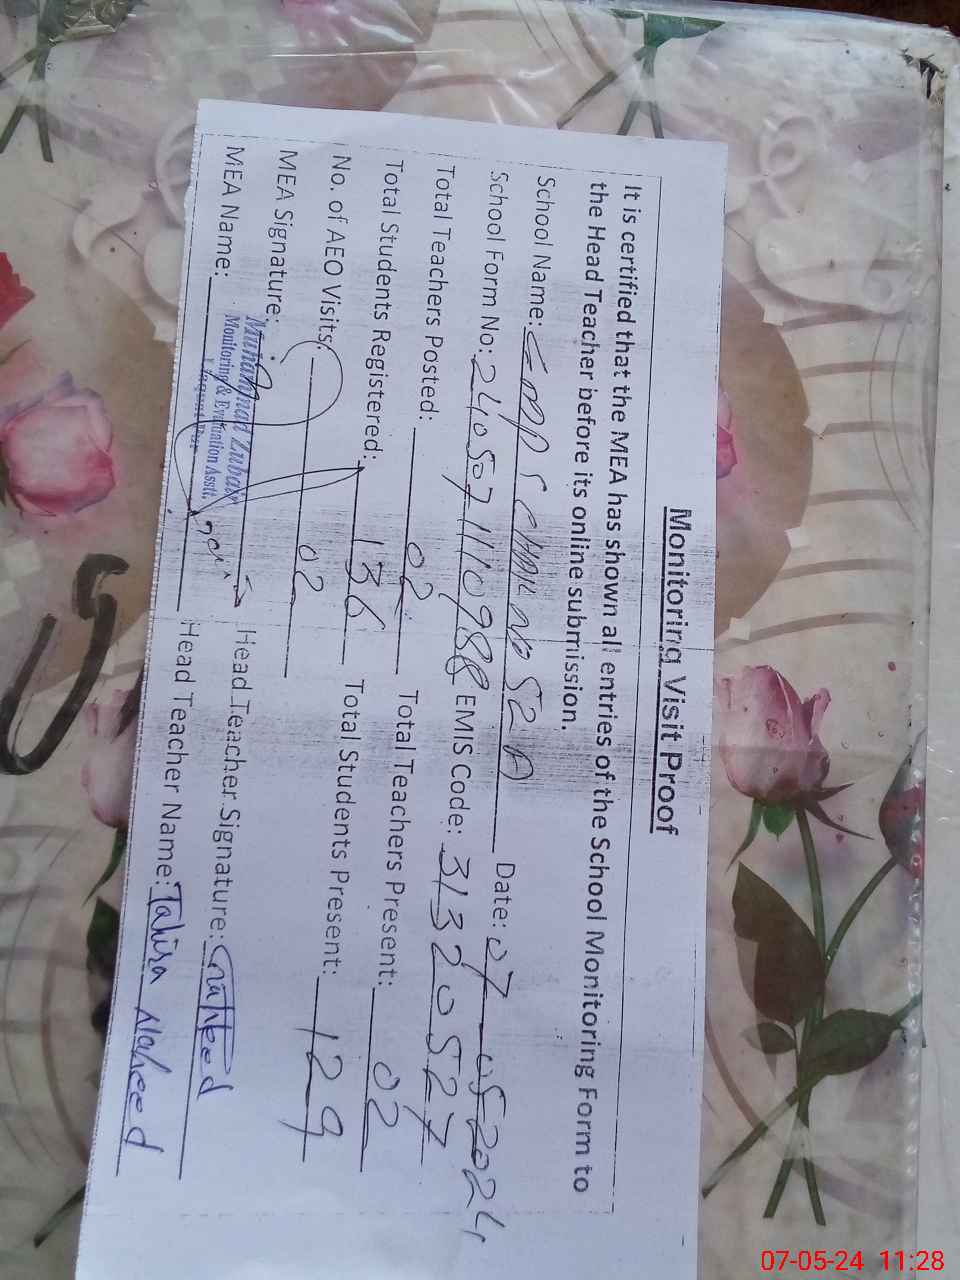 Monitoring Visit Proof
It is certified that the MEA has shown all entries of the School Monitoring Form to
the Head Teacher before its online submission.
School Name: GMPS CHAK No 52 A Date: 07-05-2024
School Form No: 24050711110988 EMIS Code: 31320527
Total Teachers Posted: 02 Total Teachers Present: 02
Total Students Registered: 136 Total Students Present: 129
No. of AEO Visits: 02
MEA Signature: Head Teacher Signature: Naheed
Muhammad Zubair
Monitoring & Evaluation Asstt.
MEA Name: Head Teacher Name: Tahira Naheed
07-05-24 11:28